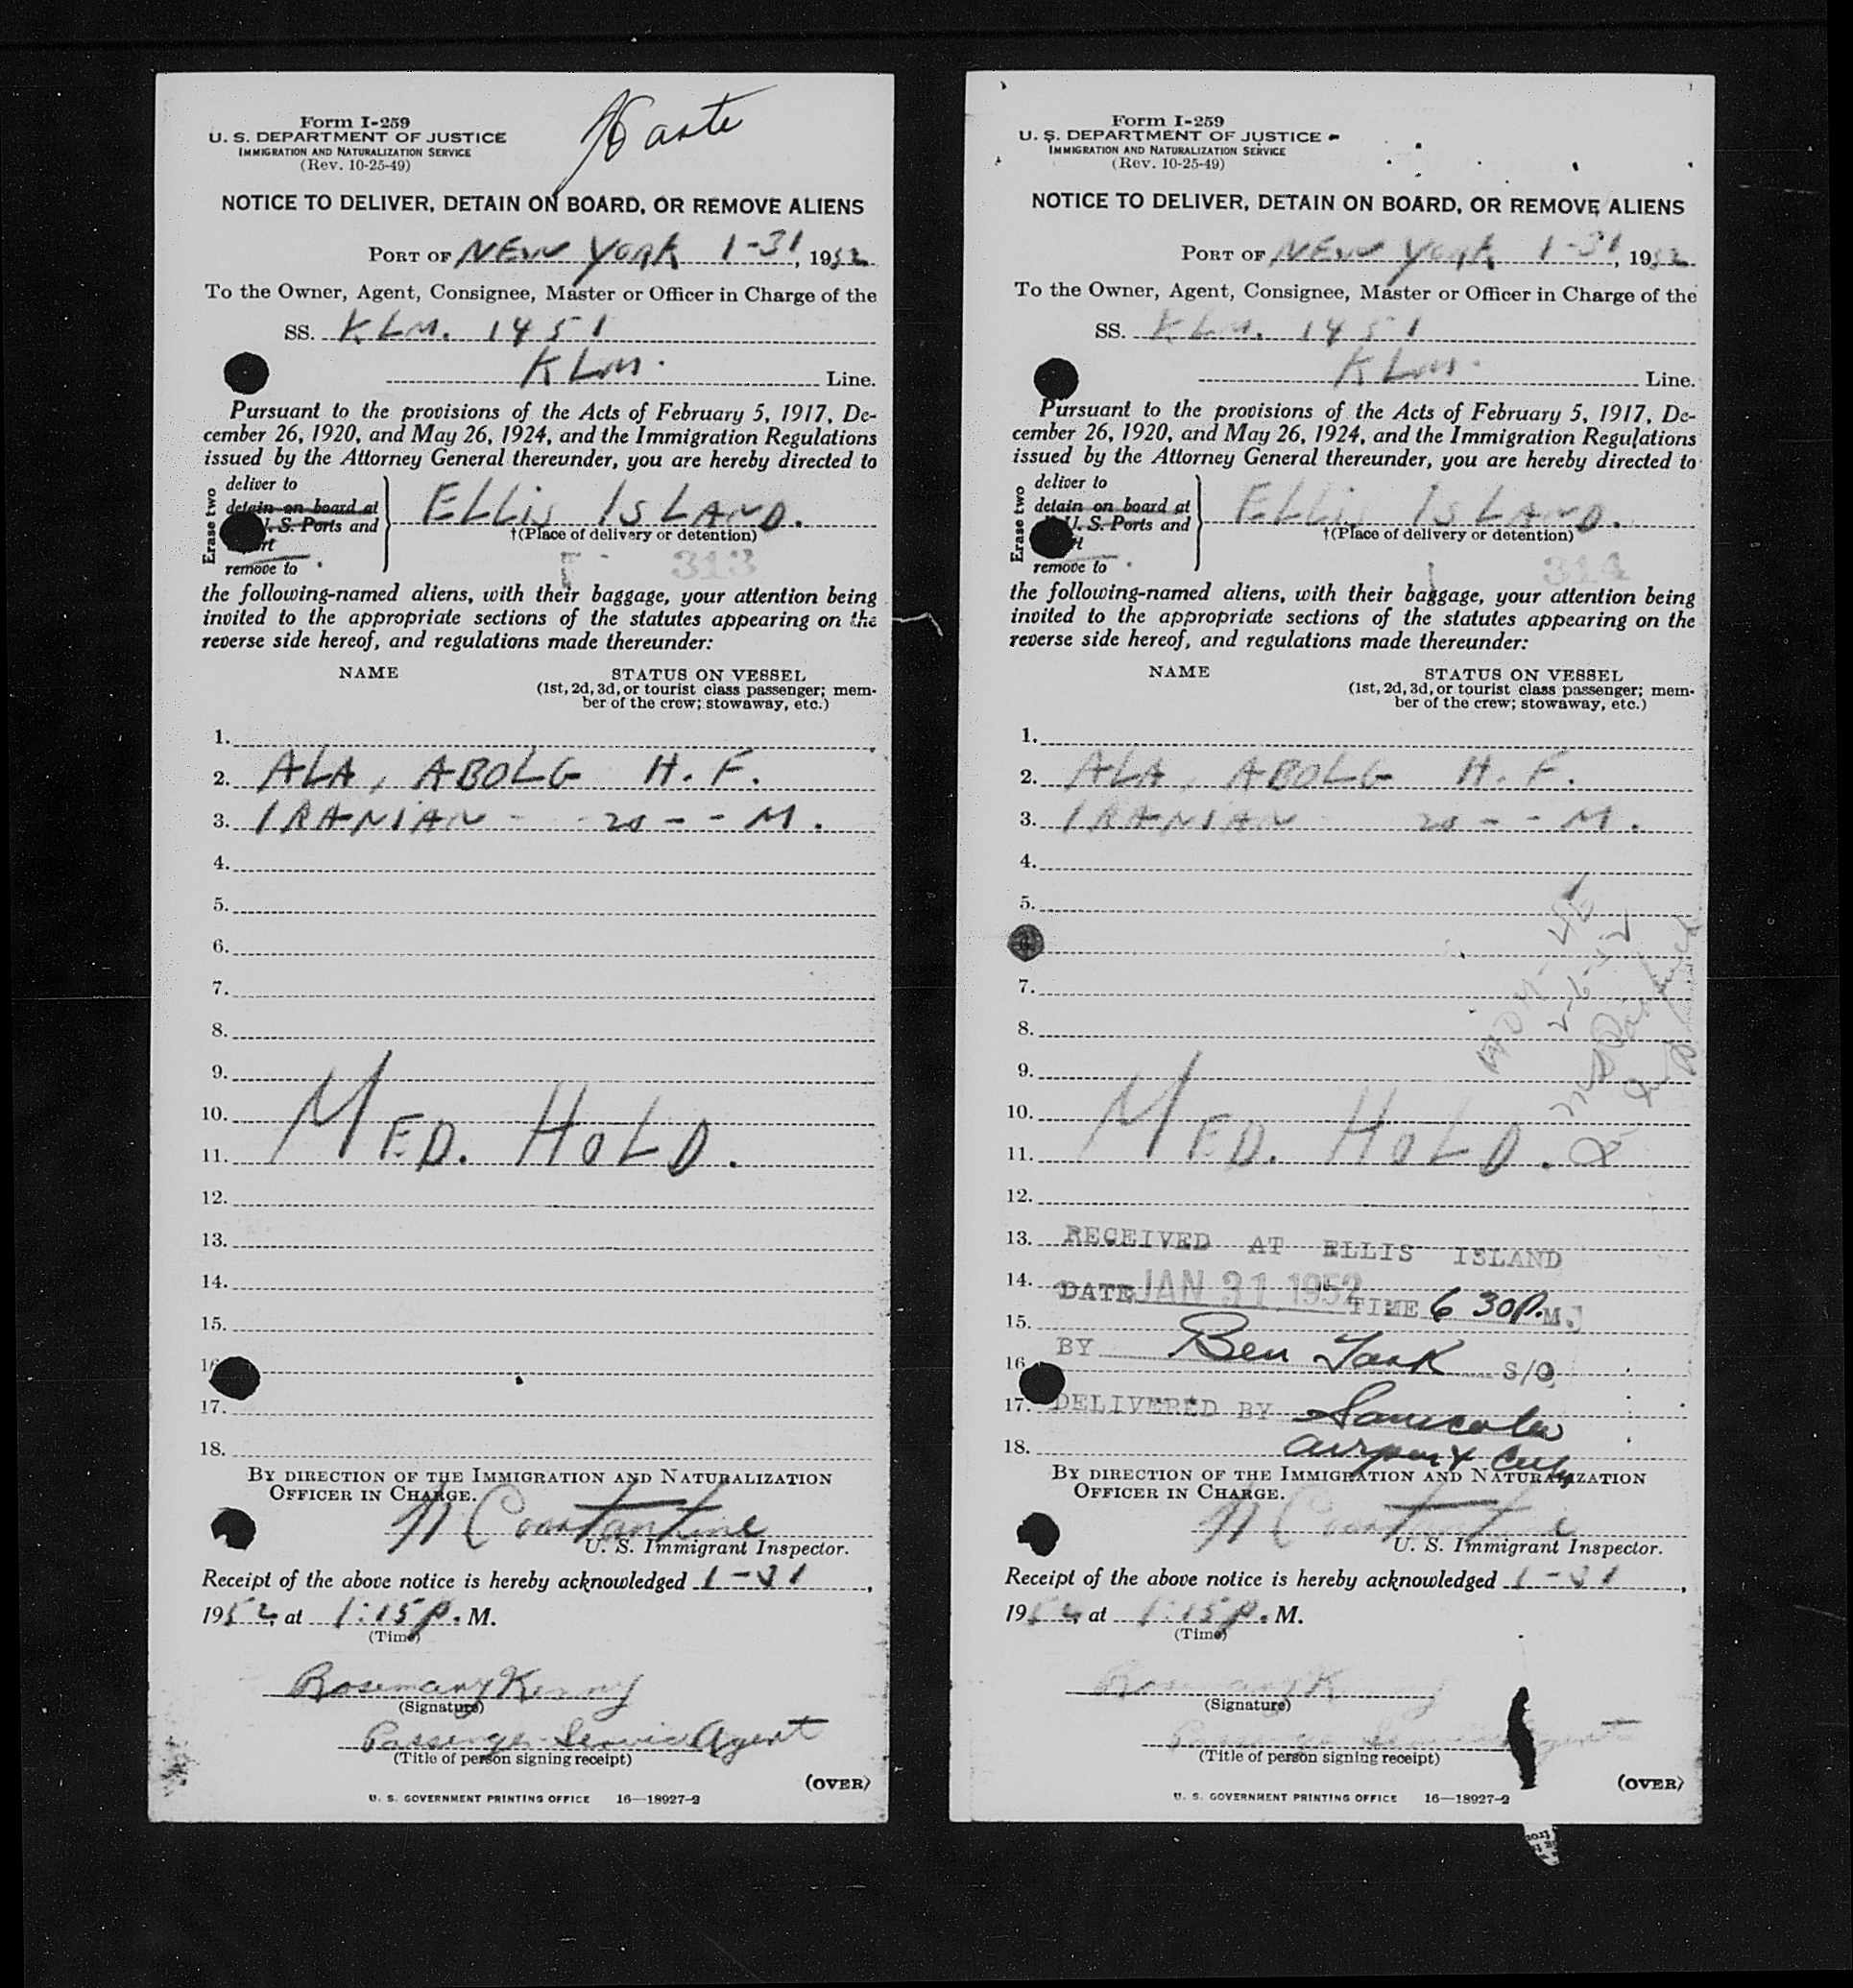 Form I-259
U. S. DEPARTMENT OF JUSTICE
IMMIGRATION AND NATURALIZATION SERVICE
(Rev. 10-25-49)
Haste
NOTICE TO DELIVER, DETAIN ON BOARD, OR REMOVE ALIENS
PORT OF NEW YORK 1-31, 1952
To the Owner, Agent, Consignee, Master or Officer in Charge of the
SS. KLM. 1451
KLM. Line.
Pursuant to the provisions of the Acts of February 5, 1917, De-
cember 26, 1920, and May 26, 1924, and the Immigration Regulations
issued by the Attorney General thereunder, you are hereby directed to
Erase two
deliver to
detain on board at
U. S. Ports and
remove to
ELLIS ISLAND.
†(Place of delivery or detention)
313
the following-named aliens, with their baggage, your attention being
invited to the appropriate sections of the statutes appearing on the
reverse side hereof, and regulations made thereunder:
NAME STATUS ON VESSEL
(1st, 2d, 3d, or tourist class passenger; mem-
ber of the crew; stowaway, etc.)
1.
2. ALA, ABOLG H. F.
3. IRANIAN - 20 - - M.
4.
5.
6.
7.
8.
9.
10.
11. MED. HOLD.
12.
13.
14.
15.
16
17.
18.
BY DIRECTION OF THE IMMIGRATION AND NATURALIZATION
OFFICER IN CHARGE.
N Constantine
U. S. Immigrant Inspector.
Receipt of the above notice is hereby acknowledged 1-31,
1952, at 1:15 P. M.
(Time)
Rosemary Kenny
(Signature)
Passenger Service Agent
(Title of person signing receipt)
(OVER)
U. S. GOVERNMENT PRINTING OFFICE 16—18927-2
Form I-259
U. S. DEPARTMENT OF JUSTICE
IMMIGRATION AND NATURALIZATION SERVICE
(Rev. 10-25-49)
NOTICE TO DELIVER, DETAIN ON BOARD, OR REMOVE ALIENS
PORT OF NEW YORK 1-31, 1952
To the Owner, Agent, Consignee, Master or Officer in Charge of the
SS. KLM. 1451
KLM. Line.
Pursuant to the provisions of the Acts of February 5, 1917, De-
cember 26, 1920, and May 26, 1924, and the Immigration Regulations
issued by the Attorney General thereunder, you are hereby directed to
Erase two
deliver to
detain on board at
U. S. Ports and
remove to
ELLIS ISLAND.
†(Place of delivery or detention)
314
the following-named aliens, with their baggage, your attention being
invited to the appropriate sections of the statutes appearing on the
reverse side hereof, and regulations made thereunder:
NAME STATUS ON VESSEL
(1st, 2d, 3d, or tourist class passenger; mem-
ber of the crew; stowaway, etc.)
1.
2. ALA, ABOLG H. F.
3. IRANIAN 20 - - M.
4.
5.
7.
8.
9.
10.
11. MED. HOLD.
12.
13. RECEIVED AT ELLIS ISLAND
14. DATE JAN 31 1952 TIME 6 30 P.M.
15.
16. BY Ben Tark S/O
17. DELIVERED BY
18. airport
BY DIRECTION OF THE IMMIGRATION AND NATURALIZATION
OFFICER IN CHARGE.
N Constantine
U. S. Immigrant Inspector.
Receipt of the above notice is hereby acknowledged 1-31,
1952, at 1:15 P. M.
(Time)
Rosemary K
(Signature)
Passenger Service Agent
(Title of person signing receipt)
(OVER)
U. S. GOVERNMENT PRINTING OFFICE 16—18927-2